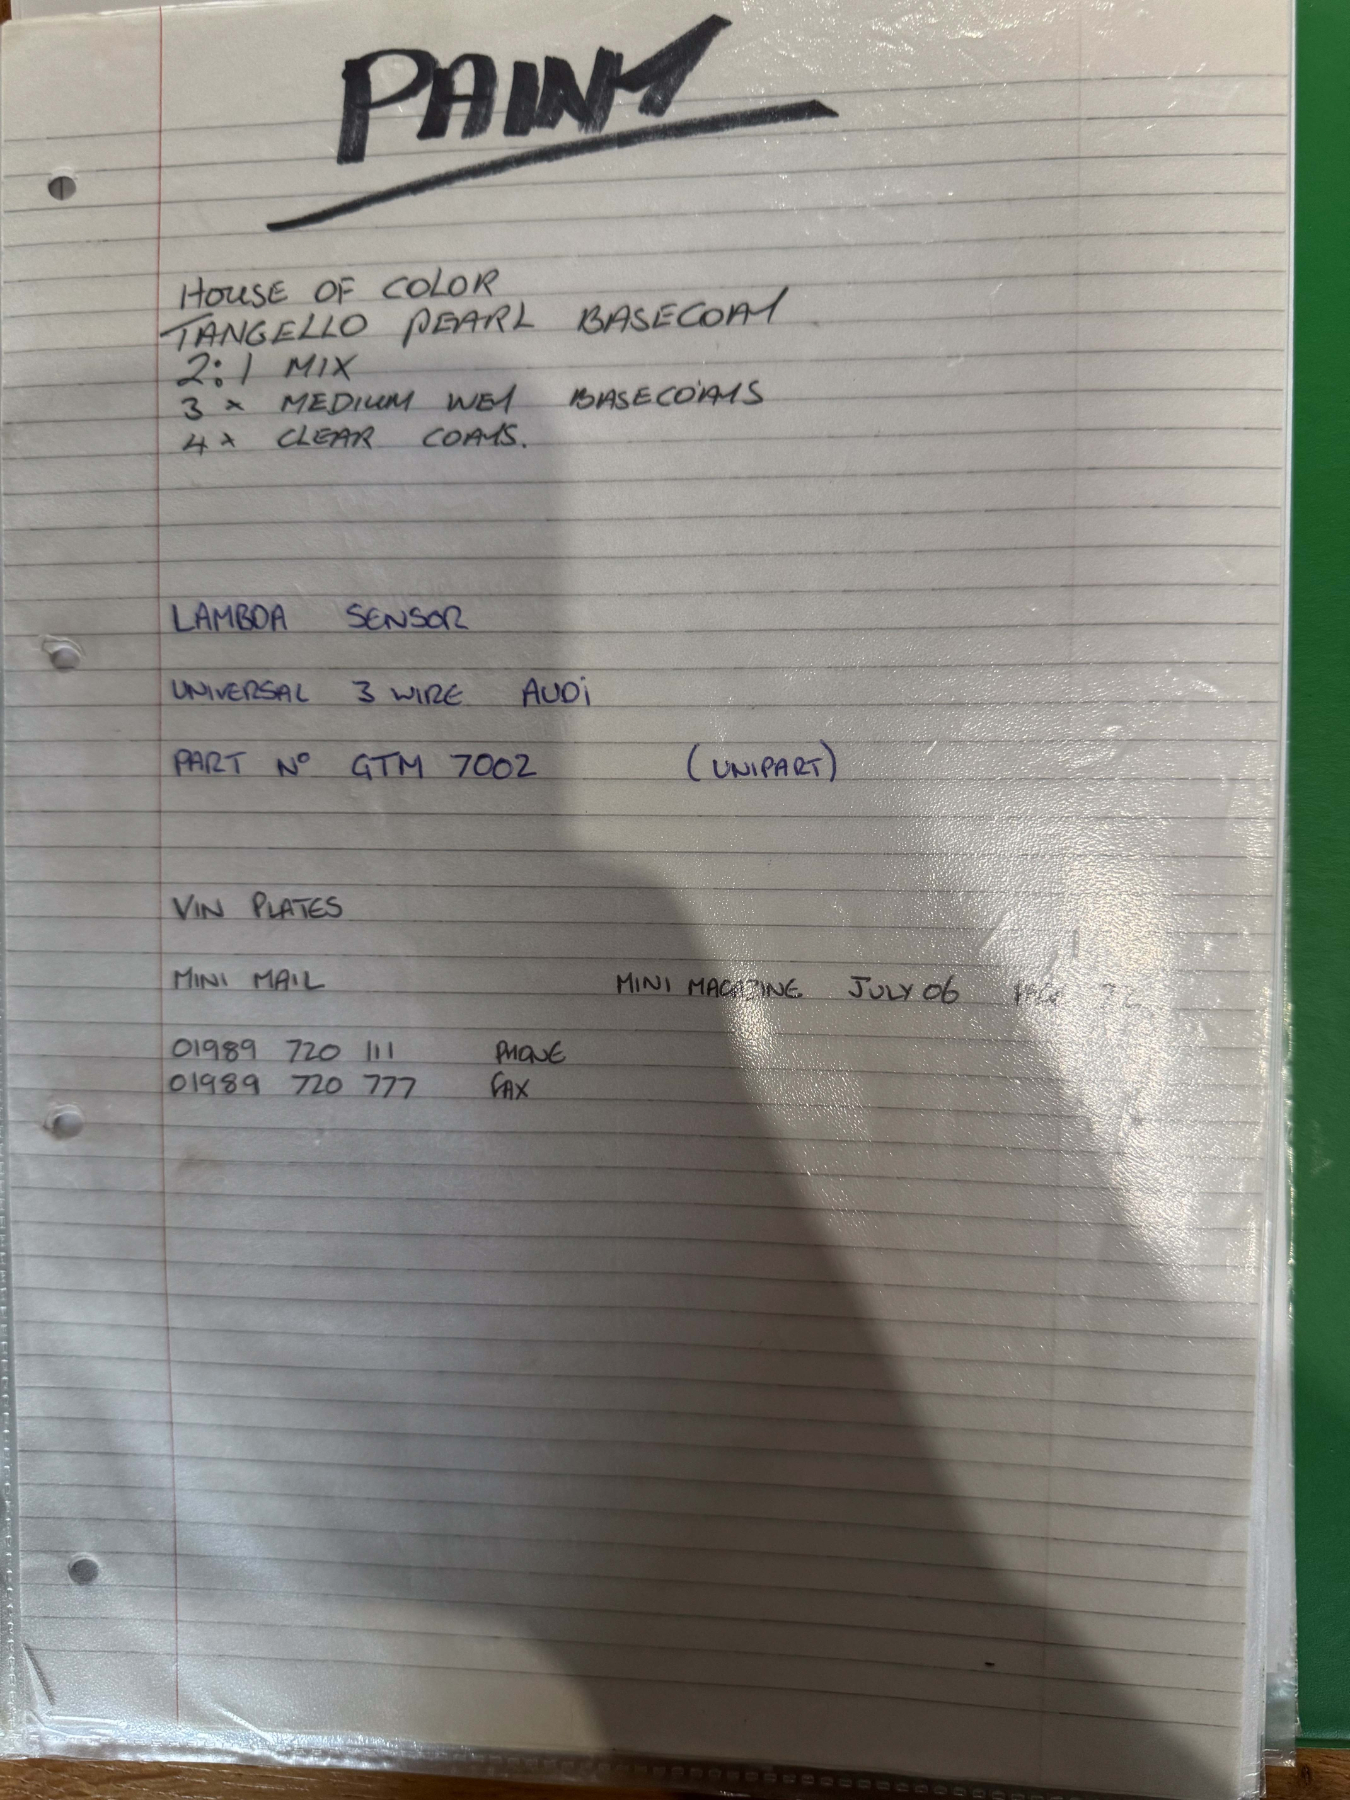 PAINT
HOUSE OF COLOR
TANGELLO PEARL BASECOAT
2:1 MIX
3 x MEDIUM WET BASECOATS
4 x CLEAR COATS.
LAMBDA SENSOR
UNIVERSAL 3 WIRE AUDi
PART Nº GTM 7002 (UNIPART)
VIN PLATES
MINI MAIL MINI MAGAZINE JULY 06
01989 720 111 PHONE
01989 720 777 FAX